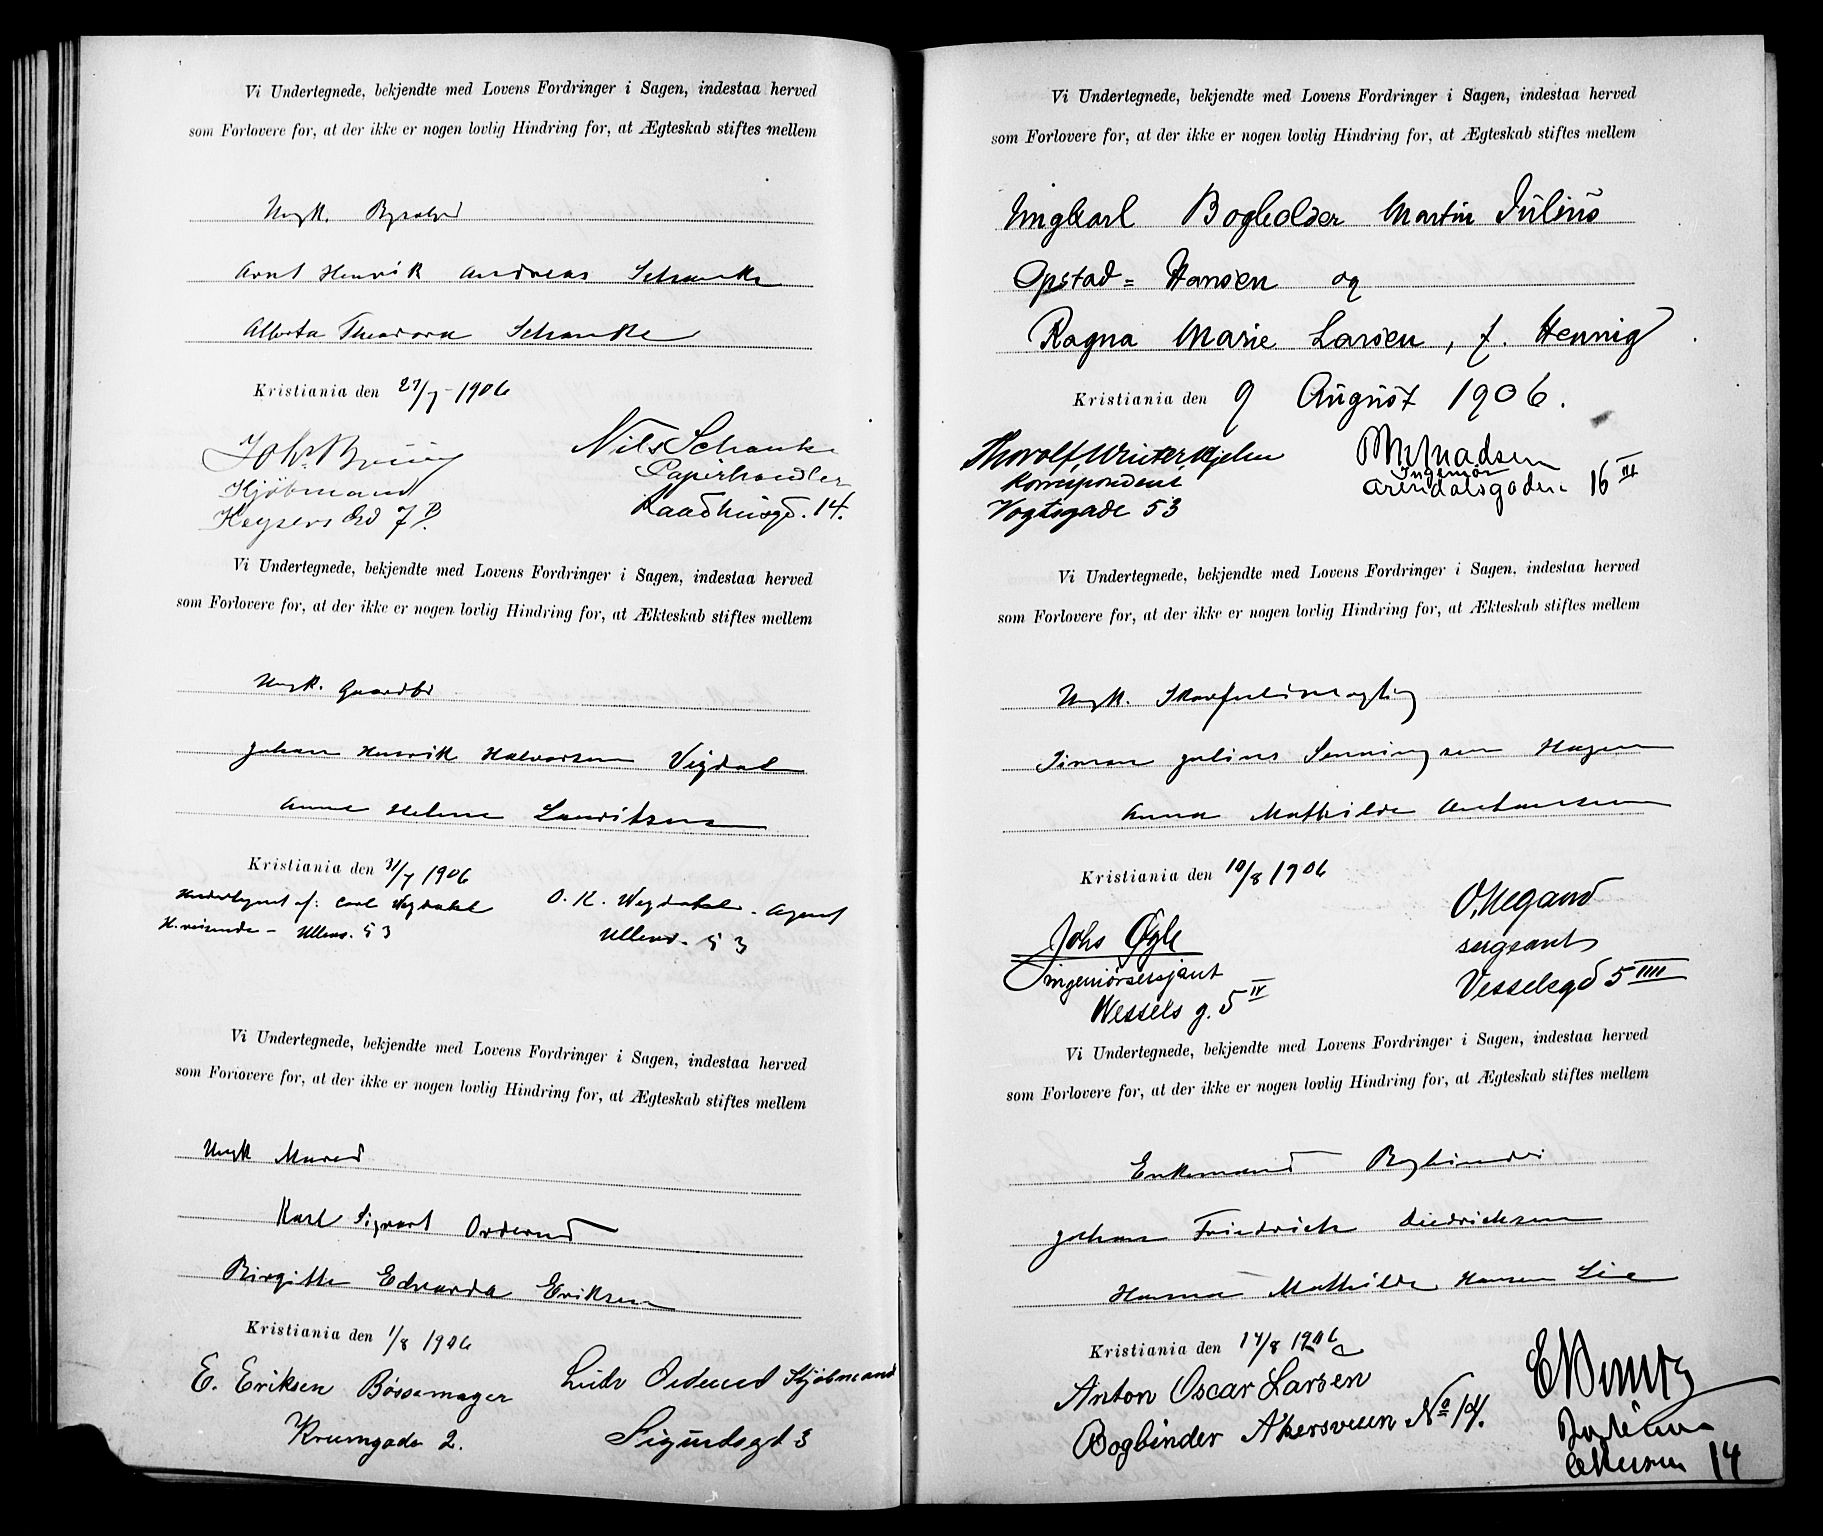 Vi Undertegnede, bekjendte med Lovens Fordringer i Sagen, indestaa herved
som Forlovere for, at der ikke er nogen lovlig Hindring for, at Ægteskab stiftes mellem
Ungk.
Arnt Henrik Andreas Schanke
Alberta Theodora Schanke
Kristiania den 27/7 - 1906
Kjøbmand
Keysers Gd 7 B.
Nils Schanke
Papirhandler
Raadhusgd. 14.
Vi Undertegnede, bekjendte med Lovens Fordringer i Sagen, indestaa herved
som Forlovere for, at der ikke er nogen lovlig Hindring for, at Ækteskab stiftes mellem
Ungk. Gaardbr
Johan Henrik Halvorsen Vigdal
Anne Helene Lauritsen
Kristiania den 31/7 1906
Carl Wegdahl
H. reisende - Ullevv. 53
O. K. Wegdahl. Agent
Ullevv. 53
Vi Undertegnede, bekjendte med Lovens Fordringer i Sagen, indestaa herved
som Forlovere for, at der ikke er nogen lovlig Hindring for, at Ægteskab stiftes mellem
Ungk Murer
Karl Sigvart Orderud
Birgitte Edvarda Eriksen
Kristiania den 1/8 1906
E. Eriksen Bøssemager
Krumgade 2.
Orderud Kjøbmand
Sigurdsgt 3
Vi Undertegnede, bekjendte med Lovens Fordringer i Sagen, indestaa herved
som Forlovere for, at der ikke er nogen lovlig Hindring for, at Ægteskab stiftes mellem
Ungkarl Bogholder Martin Julius
Opstad = Hansen og
Ragna Marie Larsen, f. Hennig
Kristiania den 9 August 1906.
Thorolf Winter Hjelm
Korrespondent
Vogtsgade 53
Ingeniør
Arendalsgaden 16 III
Vi Undertegnede, bekjendte med Lovens Fordringer i Sagen, indestaa herved
som Forlovere for, at der ikke er nogen lovlig Hindring for, at Ækteskab stiftes mellem
Ungk.
Simon Julius Henningsen Hagen
Anna Mathilde Antonsen
Kristiania den 10/8 1906
Johs Øgle
ingeniørsersjant
Wessels g. 5 IV
O. Wegand
sergeant
Vesselsgd 5 IIII
Vi Undertegnede, bekjendte med Lovens Fordringer i Sagen, indestaa herved
som Forlovere for, at der ikke er nogen lovlig Hindring for, at Ægteskab stiftes mellem
Enkemand Bogbinder
Johan Friedrich Diedrichsen
Hanna Mathilde Hansen Lie
Kristiania den 17/8 1906
Anton Oscar Larsen
Bogbinder Akersveien No 14.
14